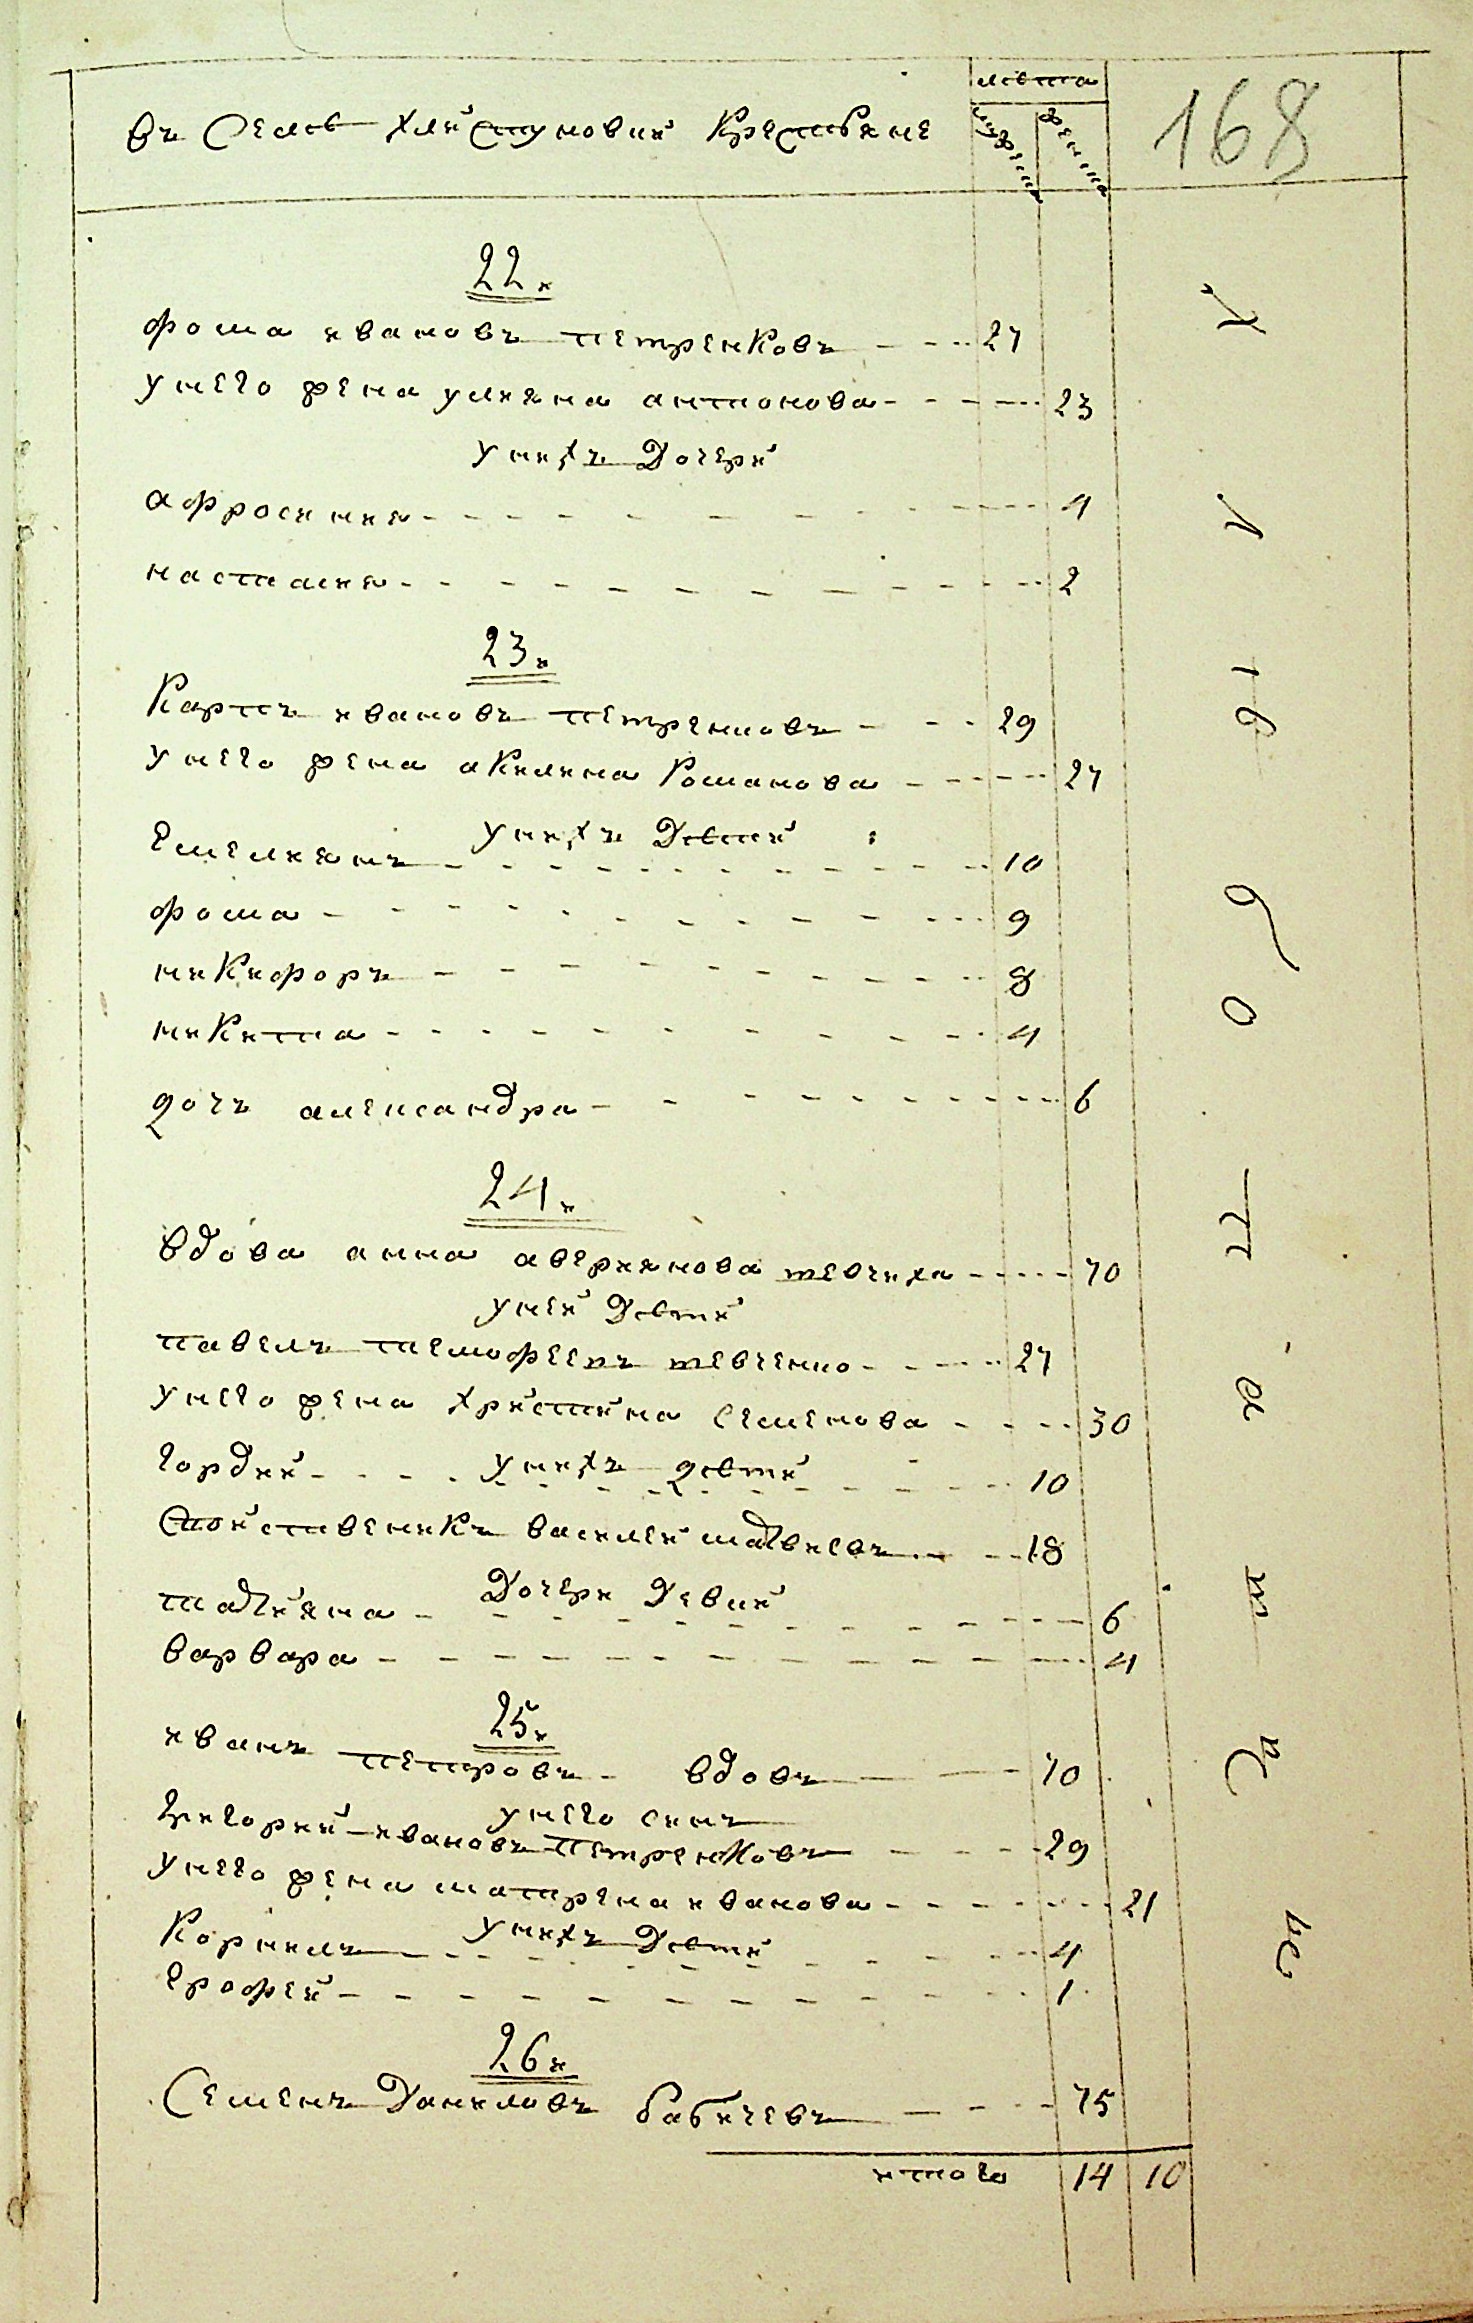 въ Селѣ Хлистуновки Крестьяне
лѣта
мужеска
женска
168
22.
фома ивановъ петренковъ 27
у него жена улияна антонова 23
у нихъ Дочери
афросиния 4
настасия 2
23.
Карпъ ивановъ петренковъ 29
у него жена акилина Романова 27
у нихъ Дѣти
Емелиянъ 10
фома 9
никифоръ 8
никита 4
дочь александра 6
24.
вдова анна аверианова шевчиха 70
у ней Дѣти
павелъ тимофеевъ шевченко 27
у него жена христина Семенова 30
у нихъ дѣти
гордий 10
василей матвиевъ 18
Дочери Девки
татияна 6
варвара 4
25.
иванъ петровъ вдовъ 70
у него синъ
григорий ивановъ петренковъ 29
у него жена матрена иванова 21
у нихъ Дѣти
Корнилъ 4
Ерофей 1
26.
Семенъ Даниловъ бабичевъ 75
итого 14 10